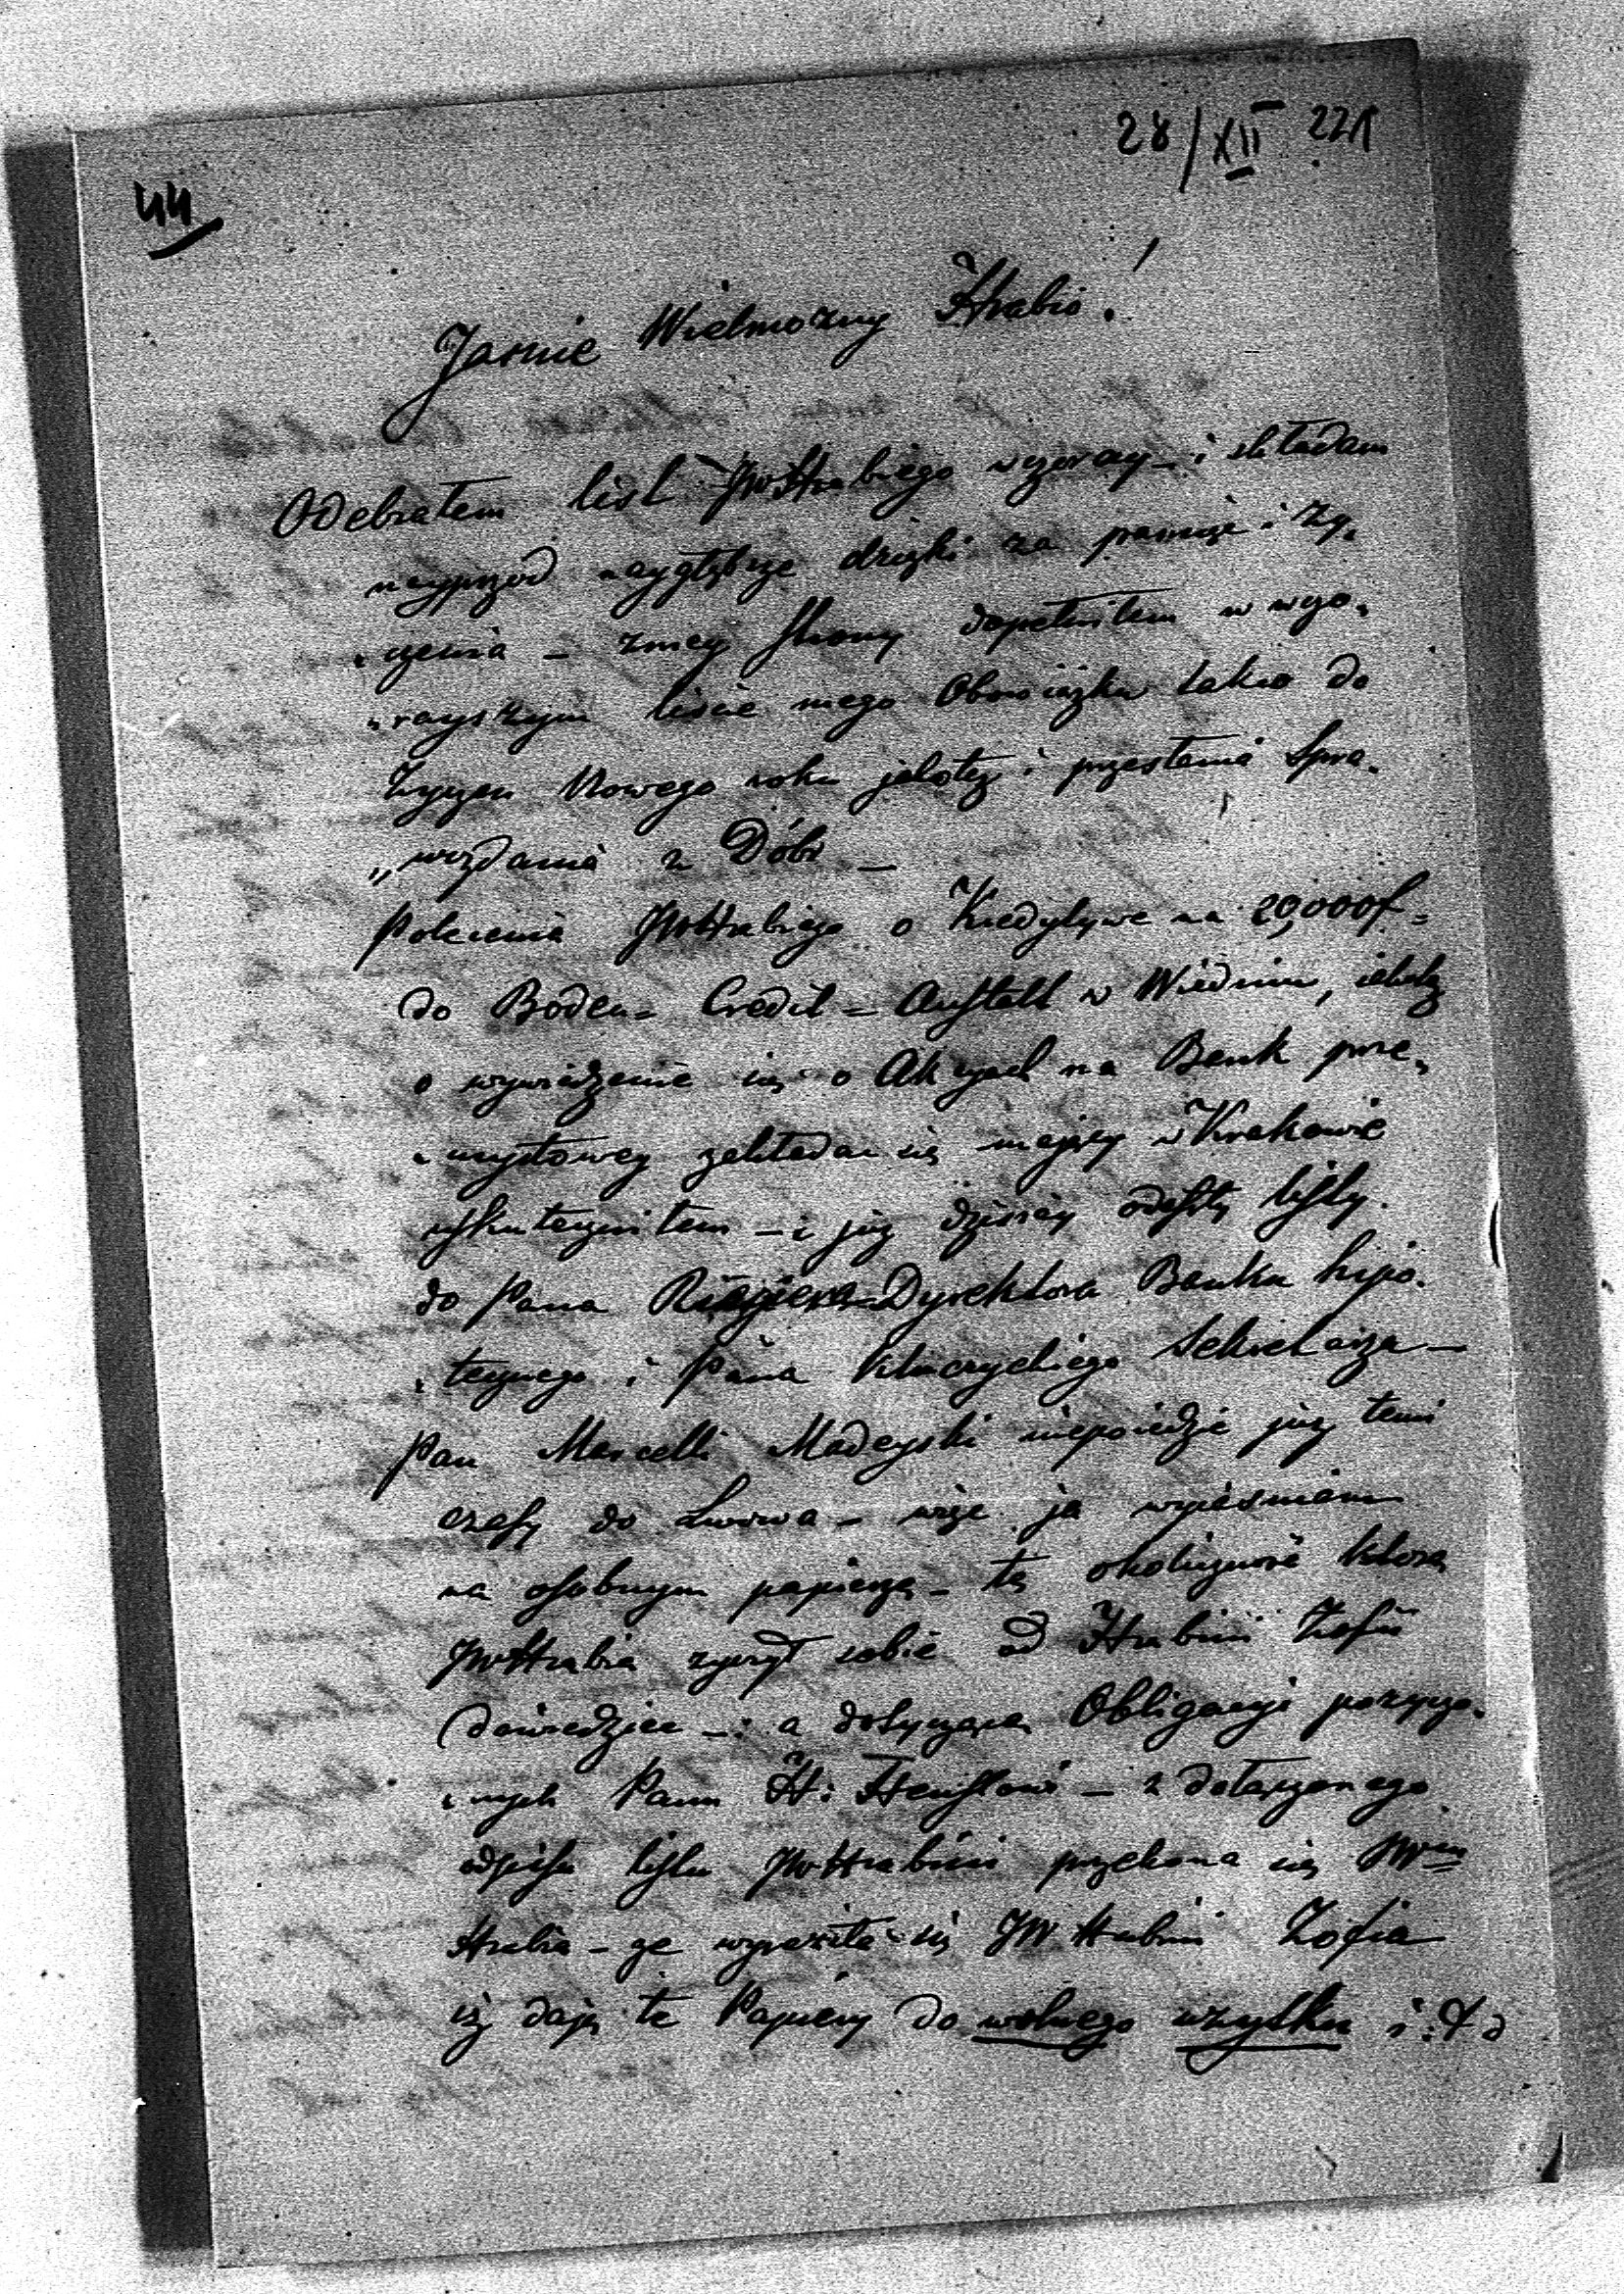 28/XII 221
44
Jasnie Wielmożny Hrabio!
Odebrałem list JWHrabiego wczoray – i składam
nayprzod naygłębsze dzięki za pamięć i ży„
„czenia – zmey strony dopełniłem w wczo„
„rayszym liscie mego Obowiązku takio do
Życzen Nowego roku jakotez i przesłania Spra„
„wozdania z Dóbr –
Polecenia JWHrabiego o Kredytywe na 20,000f =
do Boden = Credit = Anstalt w Wiedniu, jakotez
o wywiedzenie się o Akcyach na Bank prze„
„mysłowey zakładac się mający w Krakowie
uskuteczniłem – i już dzisiay odeszły listy
do Pana Dyrektora Banku hipo„
„tecznego i Pana Sekretarza –
Pan Marcelli Madeyski niepoiedzie już temi
czasy do Lwowa – więc ja wyiasniam
na osobnym papierze – tę okoliczność ktorą
JWHrabia życzył sobie od Hrabini Zofii
dowiedziec – : a dotyczące Obligacyi pożyczo„
„nych Panu H: – z dołączonego
odpisu listu JWHrabini przekona się JW
Hrabia – ze wyraziła się JWHrabini Zofia
iz daję te Papiery do wolnego uzytku i: t d